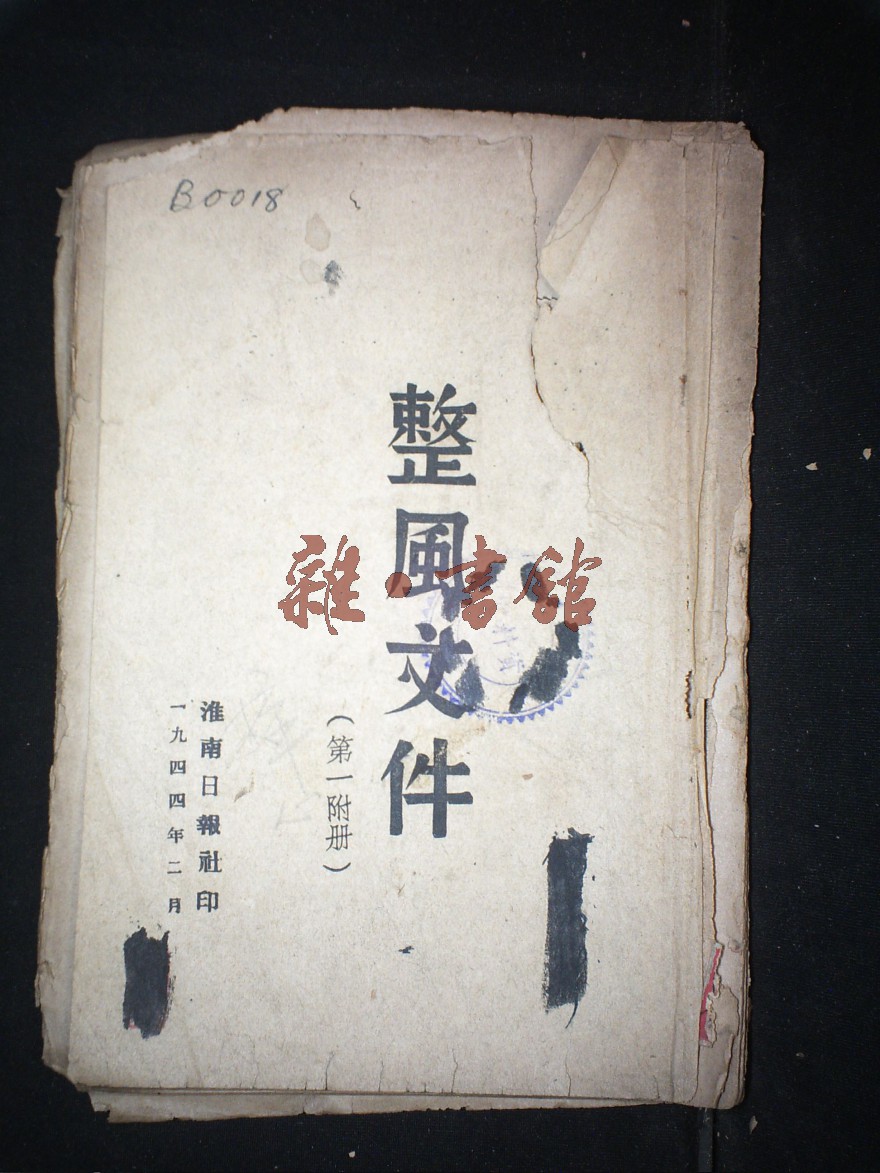 B0018
整風文件
（第一附册）
淮南日報社印
一九四四年二月
雜·書館